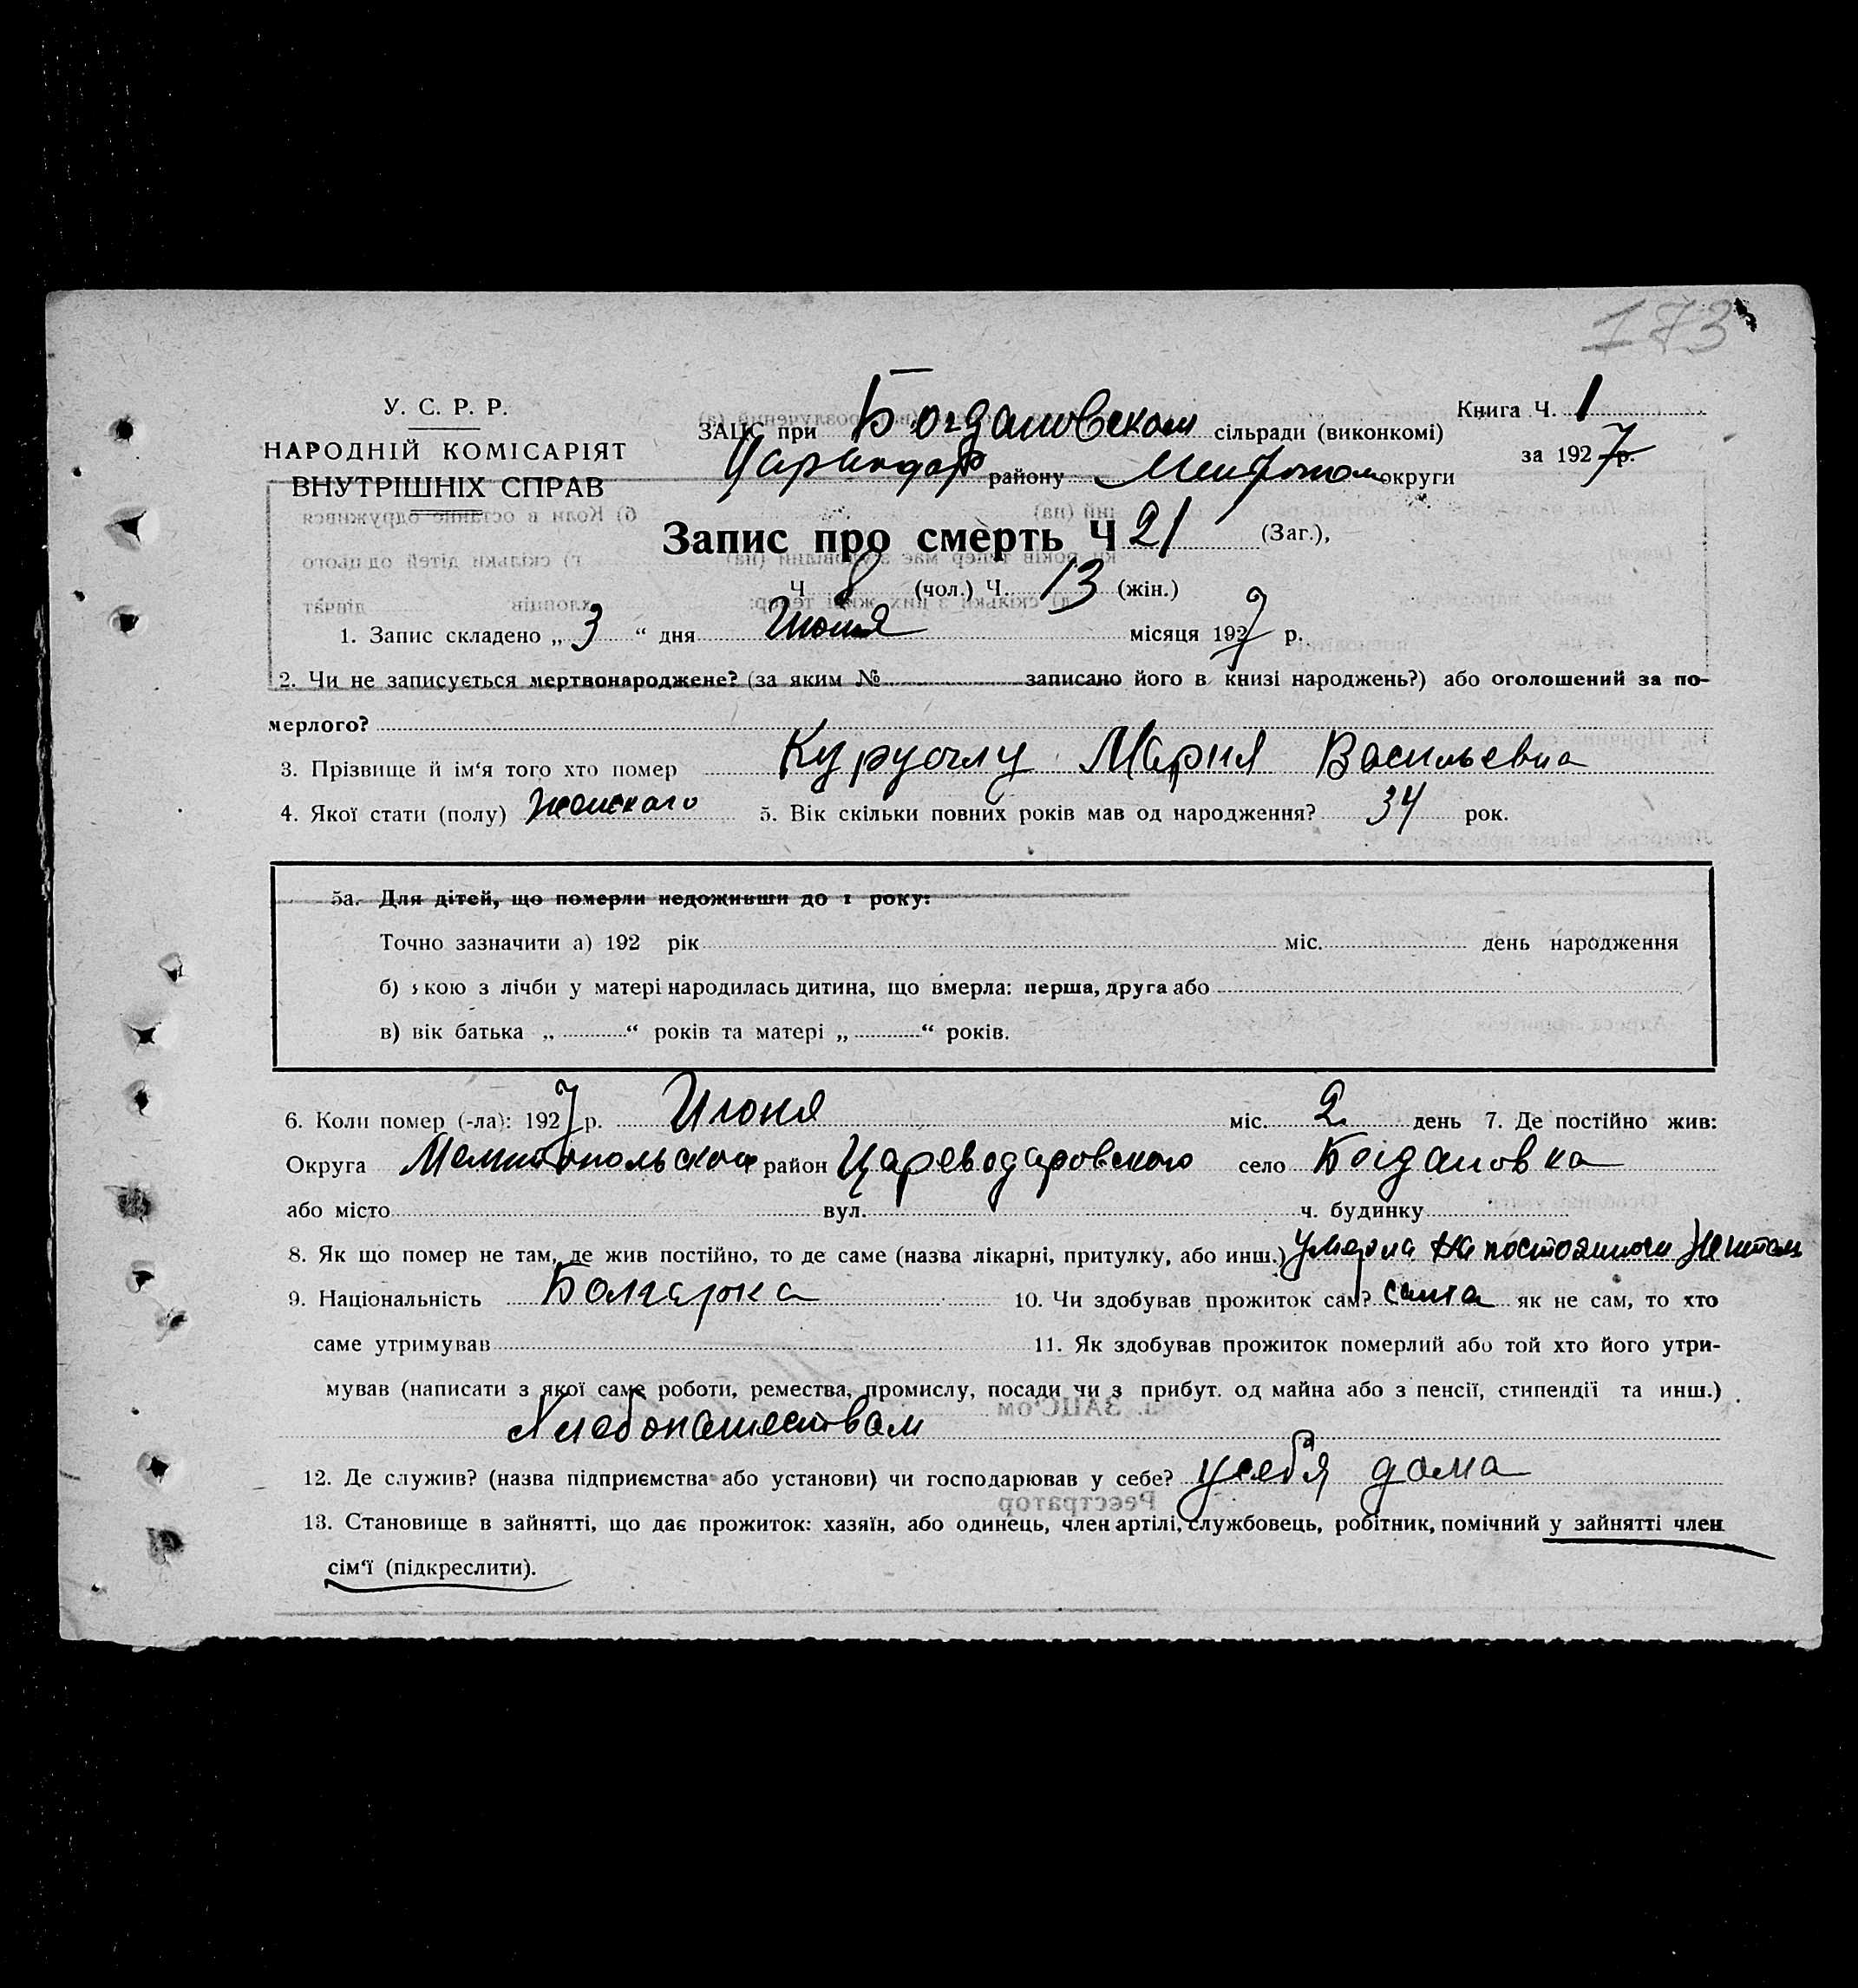 173
У. С. Р. Р.
НАРОДНІЙ КОМІСАРІЯТ
ВНУТРІШНІХ СПРАВ
ЗАЦС при Богдановском сільради (виконкомі)
району Мелитопол округи
Книга Ч. 1
за 1927 р.
Запис про смерть Ч 21 (Заг.),
Ч 8 (чол.) Ч. 13 (жін.)
1. Запис складено „ 3 “ дня Июня місяця 1927 р.
2. Чи не записується мертвонароджене? (за яким № записано його в книзі народжень?) або оголошений за по-
мерлого?
3. Прізвище й ім‘я того хто помер Куруоглу Мария Васильевна
4. Якої стати (полу) Женскаго 5. Вік скільки повних років мав од народження? 34 рок.
5а. Для дітей, що померли недоживши до 1 року:
Точно зазначити а) 192 рік міс. день народження
б) якою з лічби у матері народилась дитина, що вмерла: перша, друга або
в) вік батька „ “ років та матері „ “ років.
6. Коли помер (-ла): 1927 р. Июня міс. 2 день 7. Де постійно жив:
Округа Мелитопольской район Цареводаровского село Богдановка
або місто вул. ч. будинку
8. Як що помер не там, де жив постійно, то де саме (назва лікарні, притулку, або инш.) умерла на постоянном
9. Національність Болгарка 10. Чи здобував прожиток сам? сама як не сам, то хто
саме утримував 11. Як здобував прожиток померлий або той хто його утри-
мував (написати з якої саме роботи, ремества, промислу, посади чи з прибут. од майна або з пенсії, стипендії та инш.)
Хлебопашеством
12. Де служив? (назва підприємства або установи) чи господарював у себе? у себя дома
13. Становище в зайнятті, що дає прожиток: хазяїн, або одинець, член артілі, службовець, робітник, помічний у зайнятті член
сім‘ї (підкреслити).